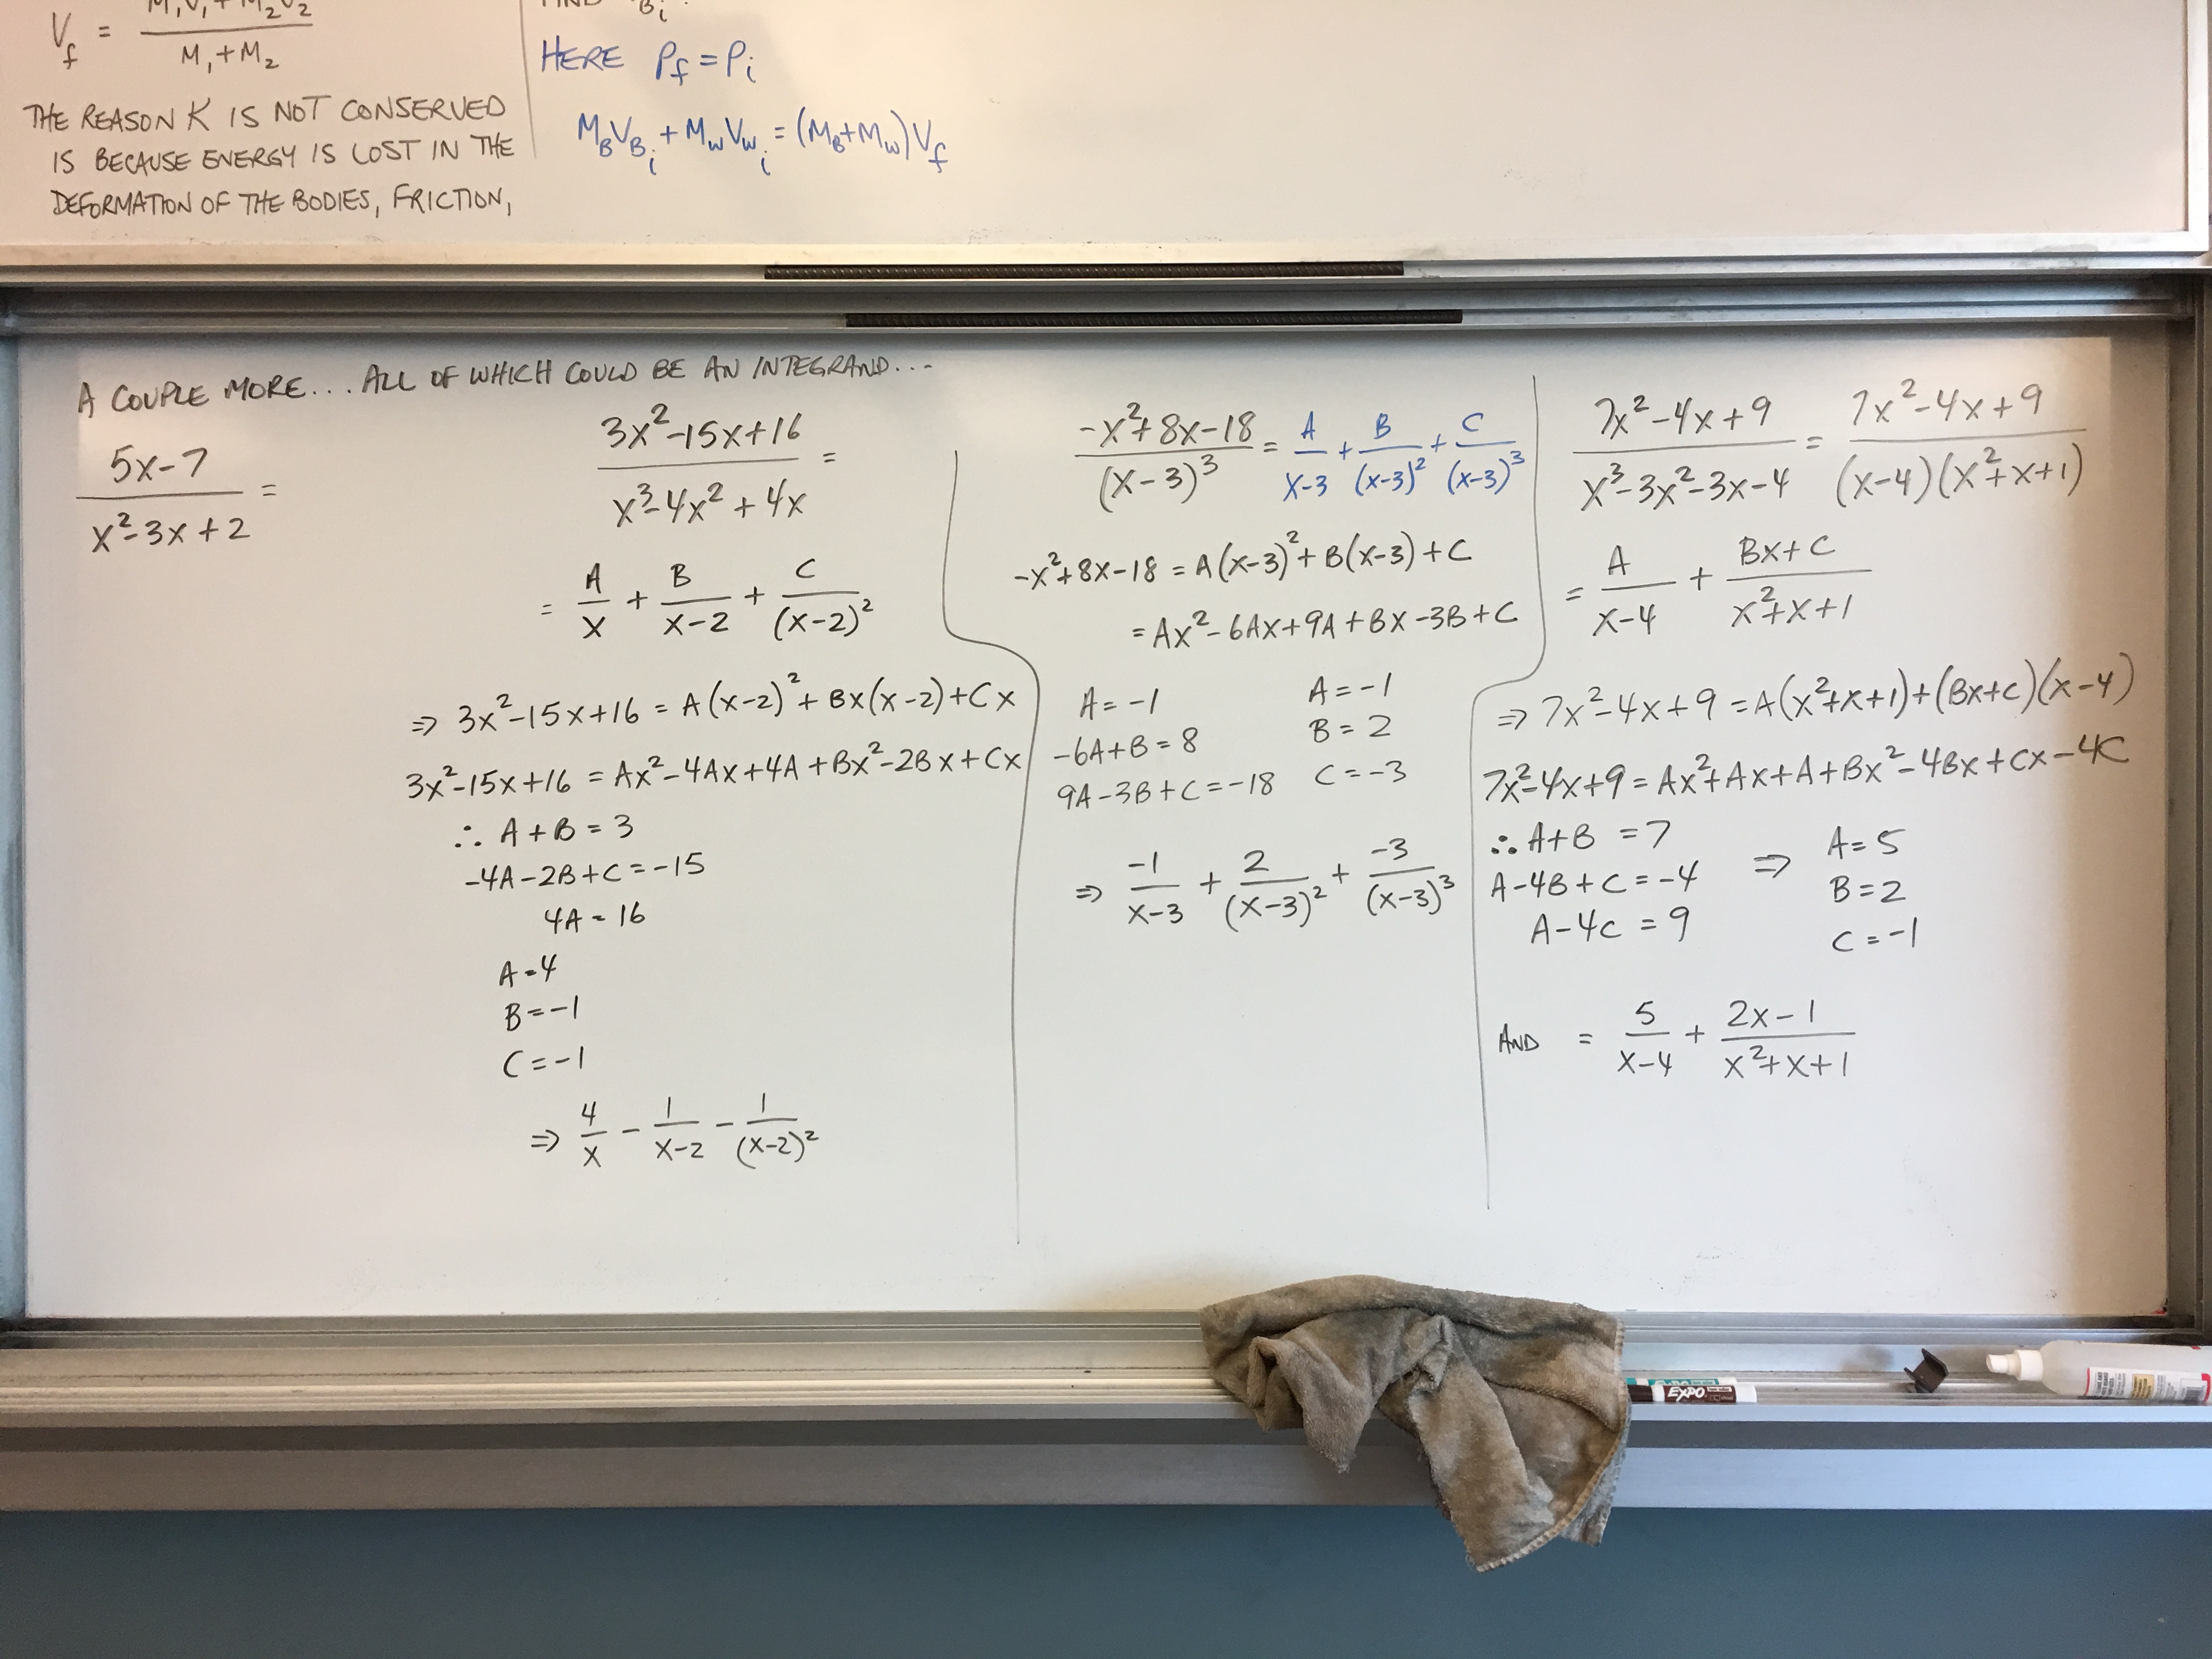 V_f = (M₁V₁ + M₂V₂) / (M₁ + M₂)
THE REASON K IS NOT CONSERVED
IS BECAUSE ENERGY IS LOST IN THE
DEFORMATION OF THE BODIES, FRICTION,
HERE P_f = P_i
M_B V_Bi + M_w V_wi = (M_B + M_w) V_f
A COUPLE MORE... ALL OF WHICH COULD BE AN INTEGRAND...
(5x-7) / (x²-3x+2) =
(3x²-15x+16) / (x³-4x²+4x) =
= A/x + B/(x-2) + C/(x-2)²
⇒ 3x²-15x+16 = A(x-2)² + Bx(x-2) + Cx
3x²-15x+16 = Ax²-4Ax+4A+Bx²-2Bx+Cx
∴ A+B = 3
-4A-2B+C = -15
4A = 16
A = 4
B = -1
C = -1
⇒ 4/x - 1/(x-2) - 1/(x-2)²
(-x²+8x-18) / (x-3)³ = A/(x-3) + B/(x-3)² + C/(x-3)³
-x²+8x-18 = A(x-3)² + B(x-3) + C
= Ax²-6Ax+9A+Bx-3B+C
A = -1 A = -1
-6A+B = 8 B = 2
9A-3B+C = -18 C = -3
⇒ -1/(x-3) + 2/(x-3)² + -3/(x-3)³
(7x²-4x+9) / (x³-3x²-3x-4) = (7x²-4x+9) / ((x-4)(x²+x+1))
= A/(x-4) + (Bx+C)/(x²+x+1)
⇒ 7x²-4x+9 = A(x²+x+1)+(Bx+C)(x-4)
7x²-4x+9 = Ax²+Ax+A+Bx²-4Bx+Cx-4C
∴ A+B = 7 A = 5
A-4B+C = -4 ⇒ B = 2
A-4C = 9 C = -1
AND = 5/(x-4) + (2x-1)/(x²+x+1)
EXPO